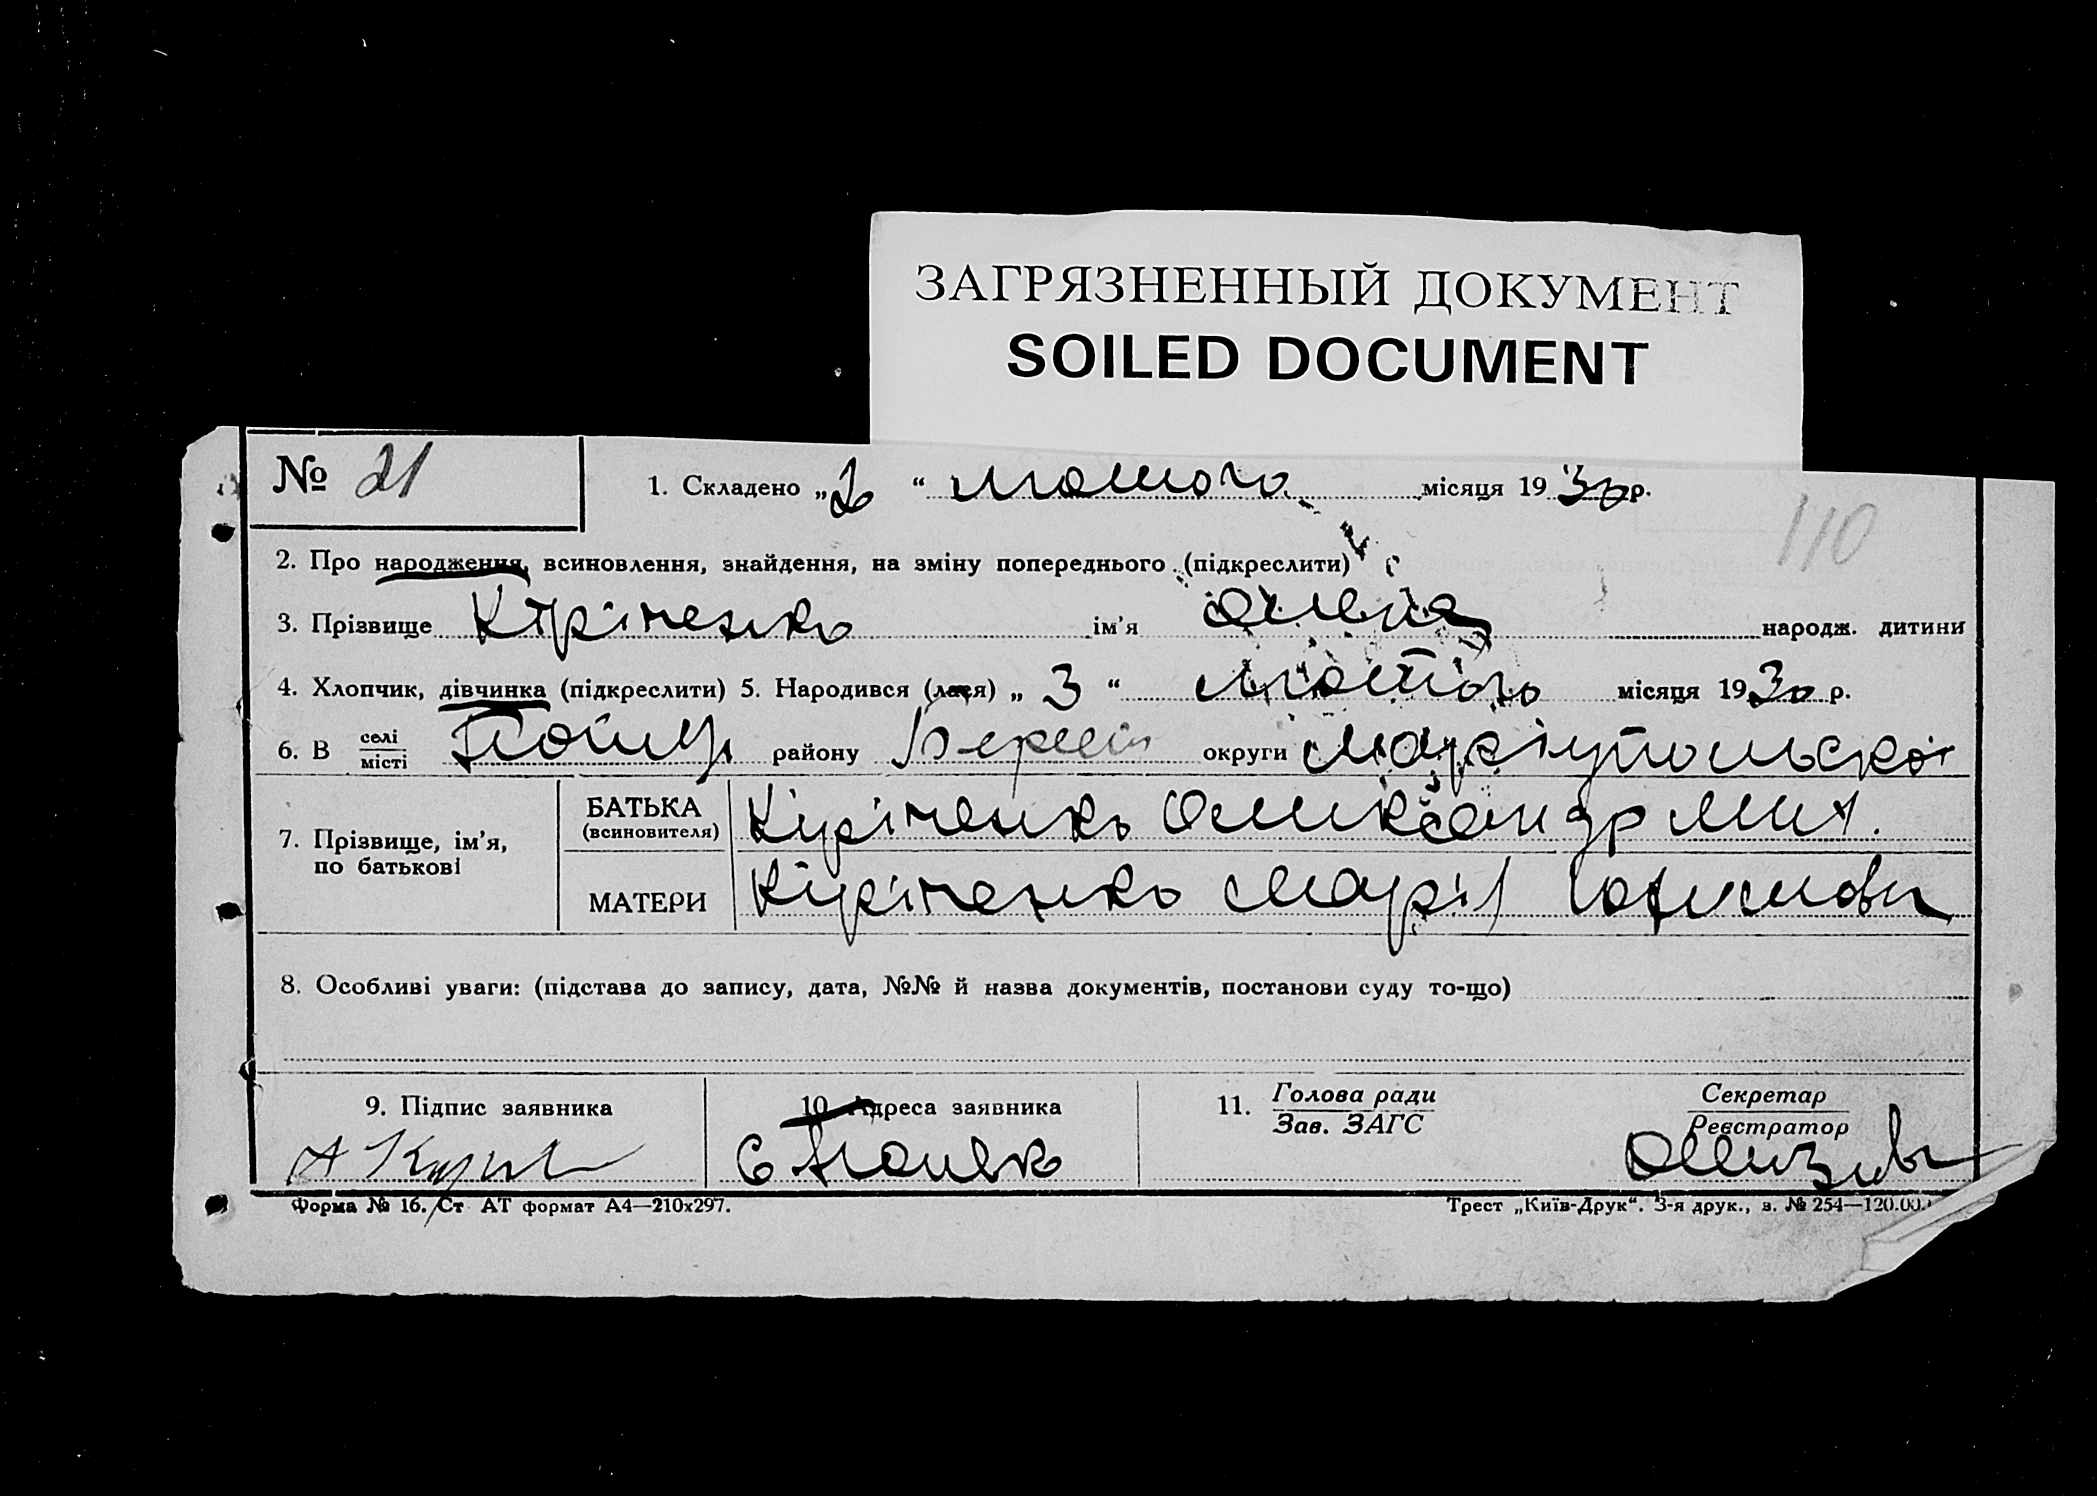 ЗАГРЯЗНЕННЫЙ ДОКУМЕНТ
SOILED DOCUMENT
№ 21
1. Складено „ “ лютого місяця 1930 р.
110
2. Про народження, всиновлення, знайдення, на зміну попереднього (підкреслити)
3. Прізвище Кіріченко ім'я народж. дитини
4. Хлопчик, дівчинка (підкреслити) 5. Народився (лася) „ 3 “ лютого місяця 1930 р.
6. В селі/місті району округи Маріупольскої
7. Прізвище, ім'я, по батькові
БАТЬКА (всиновителя) Кіріченко Олександр Мих.
МАТЕРИ Кіріченко Марія
8. Особливі уваги: (підстава до запису, дата, №№ й назва документів, постанови суду то-що)
9. Підпис заявника
10. Адреса заявника
11. Голова ради
Зав. ЗАГС
Секретар
Реєстратор
Форма № 16. Ст АТ формат А4—210х297.
Трест „Київ-Друк“. 3-я друк., з. № 254—120.00